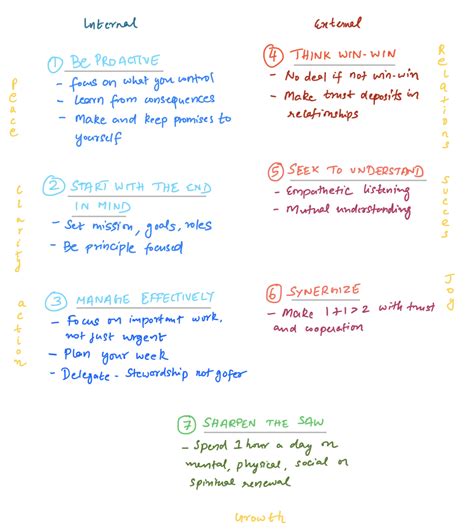 Internal
① BE PROACTIVE
- focus on what you control
- Learn from consequences
- Make and keep promises to
yourself
② START WITH THE END
IN MIND
- Set mission, goals, roles
- Be principle focused
③ MANAGE EFFECTIVELY
- Focus on important work,
not just urgent
- Plan your week
- Delegate - Stewardship not gofer
Peace
Clarity
action
External
④ THINK WIN-WIN
- No deal if not win-win
- Make trust deposits in
relationships
⑤ SEEK TO UNDERSTAND
- Empathetic listening
- Mutual understanding
⑥ SYNERGIZE
- Make 1+1>2 with trust
and cooperation
Relations
Success
Joy
⑦ SHARPEN THE SAW
- Spend 1 hour a day on
mental, physical, social or
spiritual renewal
Growth